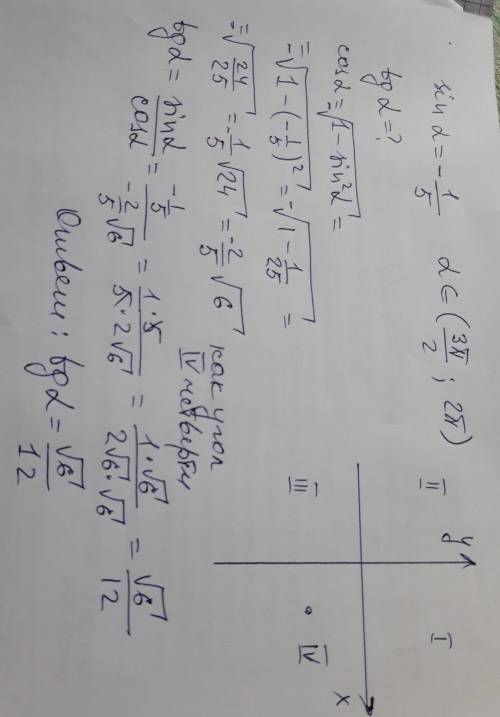 sin α = -1/5   α ∈ (3π/2 ; 2π)
tg α = ?
cos α = √(1 - sin²α) =
= -√(1 - (-1/5)²) = -√(1 - 1/25) =
= -√(24/25) = -1/5 √24 = -2/5 √6
как угол
IV четверти
tg α = sin α / cos α = (-1/5) / (-2/5 √6) = (1·5) / (5·2√6) = (1·√6) / (2√6·√6) = √6/12
Ответ: tg α = √6/12
II y I
x
III IV